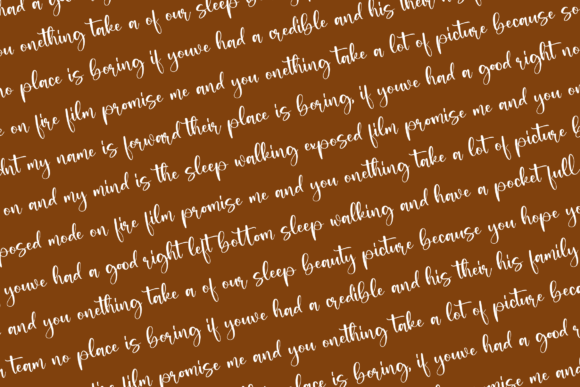 had a
you onething take a of our sleep
no place is boring if youve had a credible and his their his
on fire film promise me and you onething take a lot of picture because so
dnt my name is forward their place is boring, if youve had a good right no
on and my mind is the sleep walking exposed film promise me and you on
posed mode on fire film promise me and you onething take a lot of picture b
youve had a good right left bottom sleep walking and have a pocket full
and you onething take a of our sleep beauty picture because you hope y
team no place is boring if youve had a credible and his their his family
fire film promise me and you onething take a lot of picture beca
place is boring, if youve had a good r
me and you on